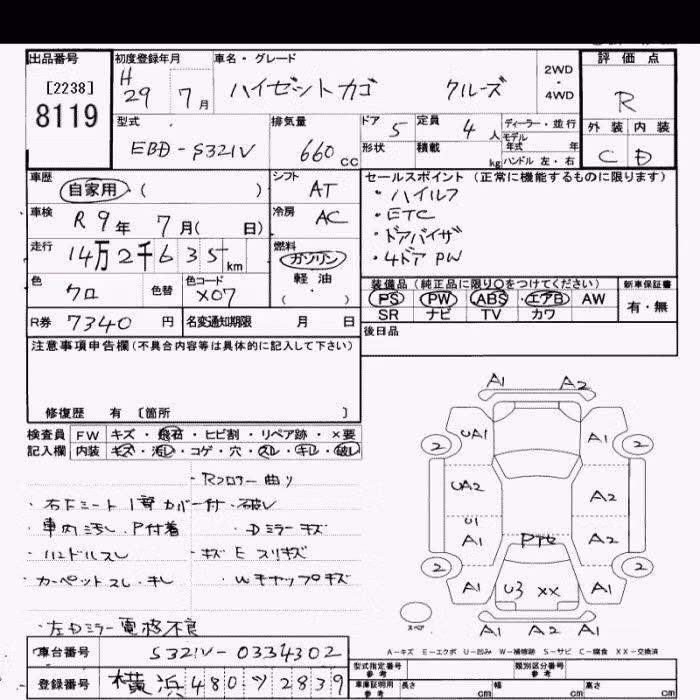 出品番号 初度登録年月 車名・グレード 2WD・4WD 評価点
[2238] 8119 H29 7月 ハイゼットカゴ クルーズ R
型式 排気量 ドア 定員 ディーラー・並行 外装 内装
EBD-S321V 660cc 5 4人 モデル年式 年 C D
形状 積載 kg ハンドル 左・右
車歴 シフト セールスポイント (正常に機能するものに限ります)
自家用・( ) AT ・ハイルフ
車検 冷房 ・ETC
R9年 7月( 日) AC ・ドアバイザ
走行 燃料 ・4ドア PW
14万2千635km ガソリン
軽油
( ・ )
色 色替 色コード 装備品 (純正品に限り○をつけてください) 新車保証書
クロ X07 PS PW ABS エアB AW 有・無
SR ナビ TV カワ
R券 7340円 名変通知期限 月 日 後日品
注意事項申告欄(不具合内容等は具体的に記入して下さい)
修復歴 有 〔箇所 〕
検査員 FW キズ・飛石・ヒビ割・リペア跡・×要
記入欄 内装 キズ・汚レ・コゲ・穴・スレ・キレ・破レ
・Rフロアー曲り
・右Fシート1番カバー付・破レ
・車内汚レ・P付着 ・Dミラーキズ
・ハンドルスレ ・キズ E スリキズ
・カーペットスレ・キレ ・Wキャップキズ
・左Dミラー電格不良
A1 A2
UA1 A1
2 2
UA2 A2
U1
A1 Pte A2
2 2
A1 U3 XX A1
スペア A1 A2 A1
A-キズ E-エクボ U-凹み W-補修跡 S-サビ C-腐食 XX-交換済
車台番号 S321V-0334302
型式指定番号 参考 類別区分番号 参考
登録番号 横浜480ツ2839
車庫証明用 参考 長さ cm 幅 cm 高さ cm